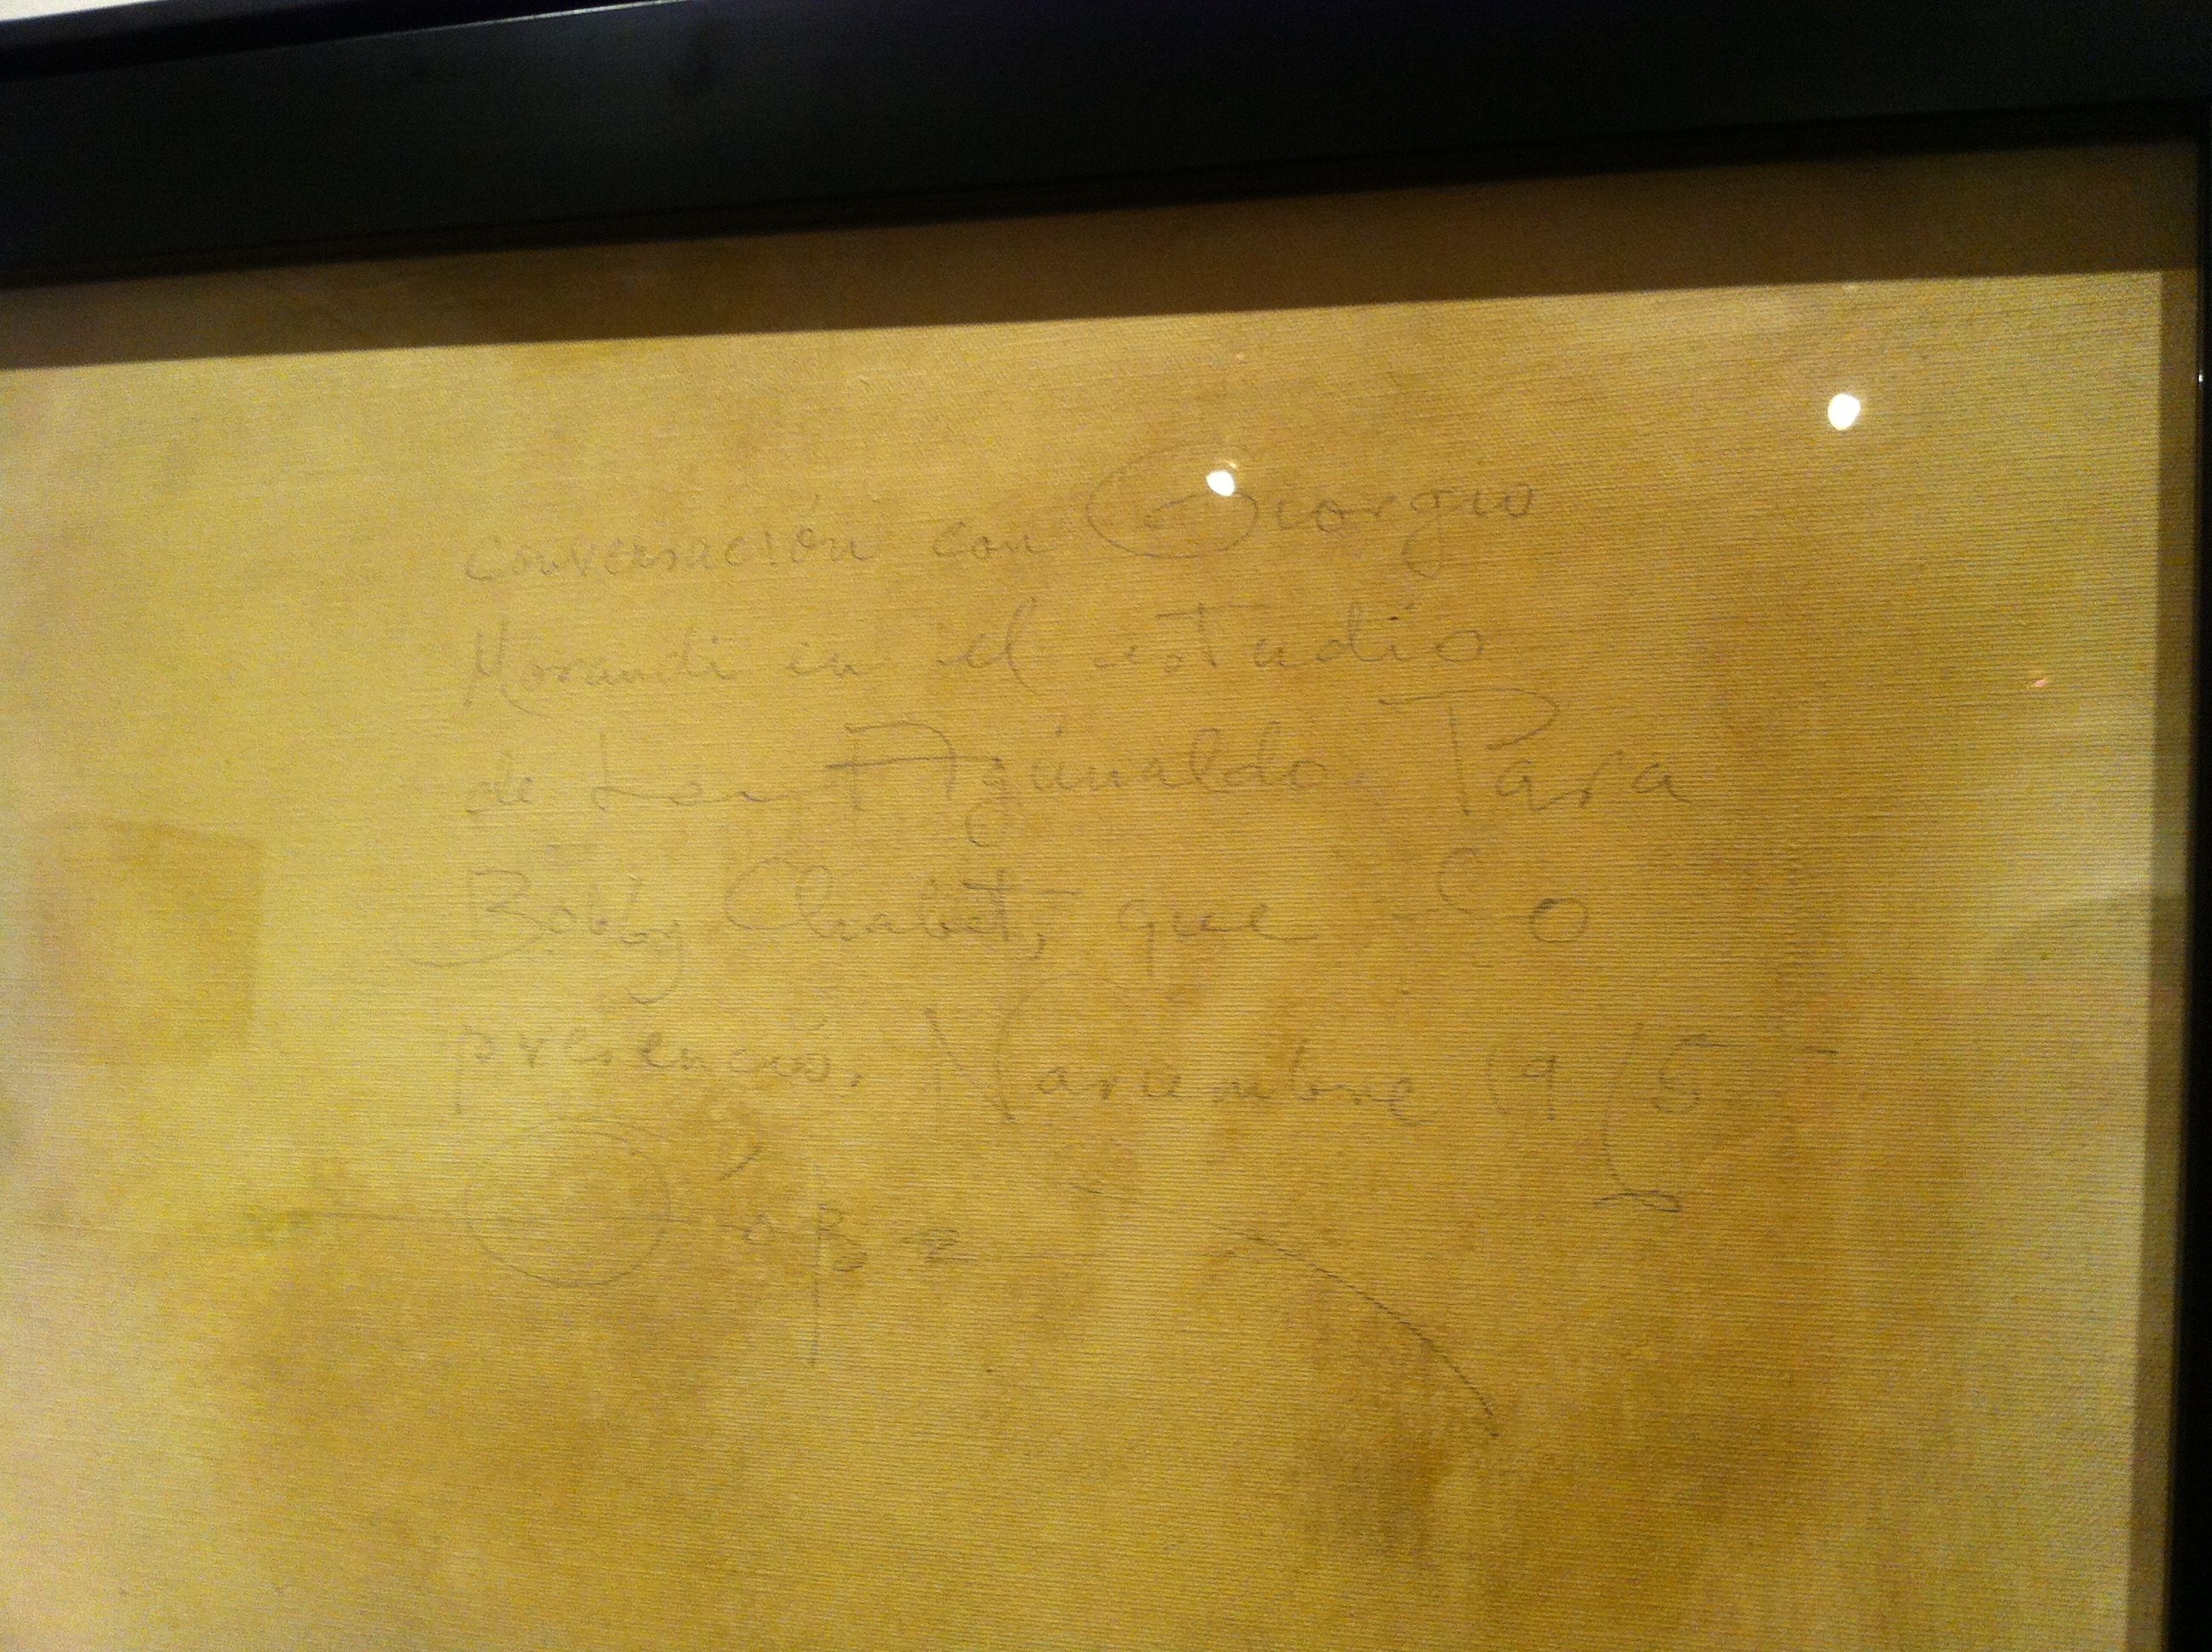 conversación con Giorgio
Morandi en el estudio
de Lee Aguinaldo. Para
Bobby Chabet, que lo
presenció. Noviembre 19